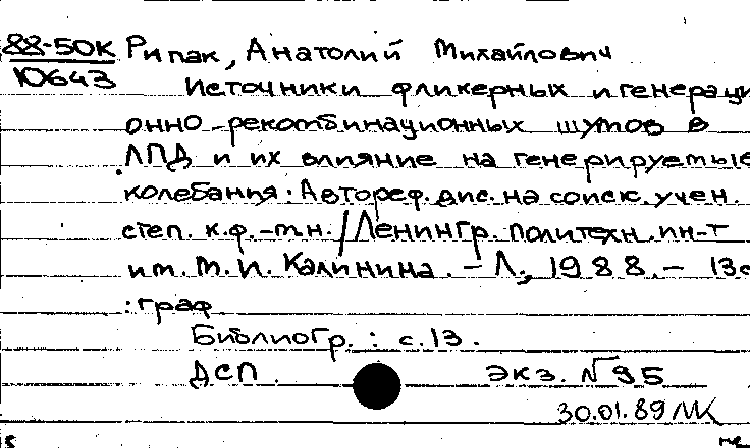 88-50К Рипак, Анатолий Михайлович
10643 Источники фликерных и генераци
онно-рекомбинационных шумов в
ЛПД и их влияние на генерируемые
колебания: Автореф. дис. на соиск. учен.
степ. к.ф.-м.н. / Ленингр. политехн. ин-т
им. М. И. Калинина. - Л., 1988. - 13с
: граф
Библиогр.: с. 13.
ДСП. экз. № 95
30.01.89